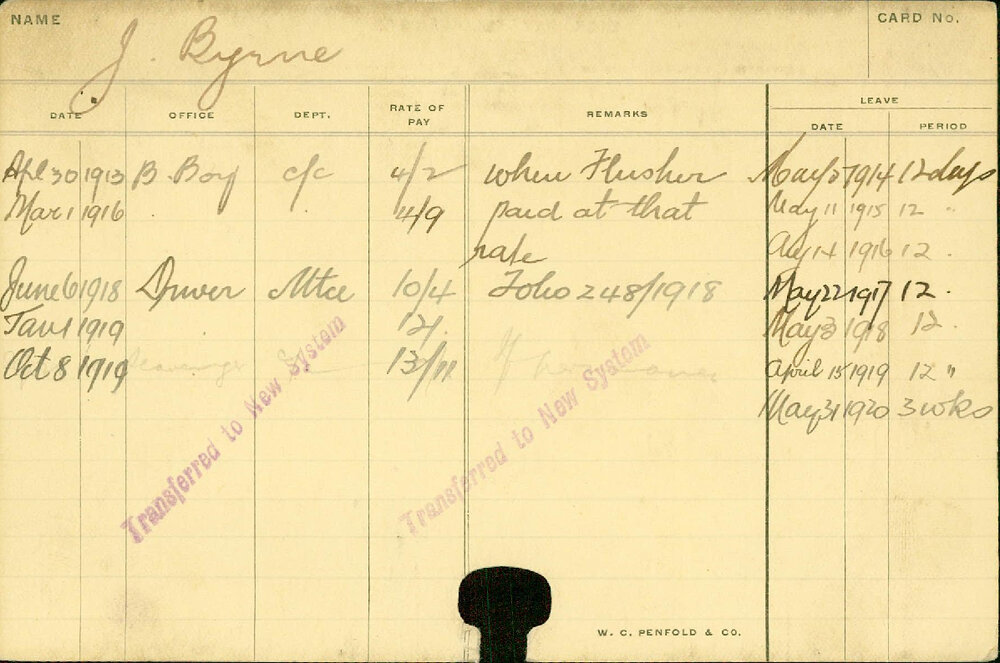 NAME
J. Byrne
CARD No.
DATE OFFICE DEPT. RATE OF PAY REMARKS LEAVE
DATE PERIOD
Apl 30 1913 B. Boy c/c 4/2 when Flusher May 5 1914 12 days
Mar 1 1916 4/9 paid at that May 11 1915 12 "
rate Aug 14 1916 12 .
June 6 1918 Driver Mtce 10/4 Folio 248/1918 May 22 1917 12 .
Jan 1 1919 12/. May 3 1918 12 .
Oct 8 1919 13/11 April 15 1919 12 "
May 31 1920 3 wks
Transferred to New System
Transferred to New System
W. C. PENFOLD & CO.